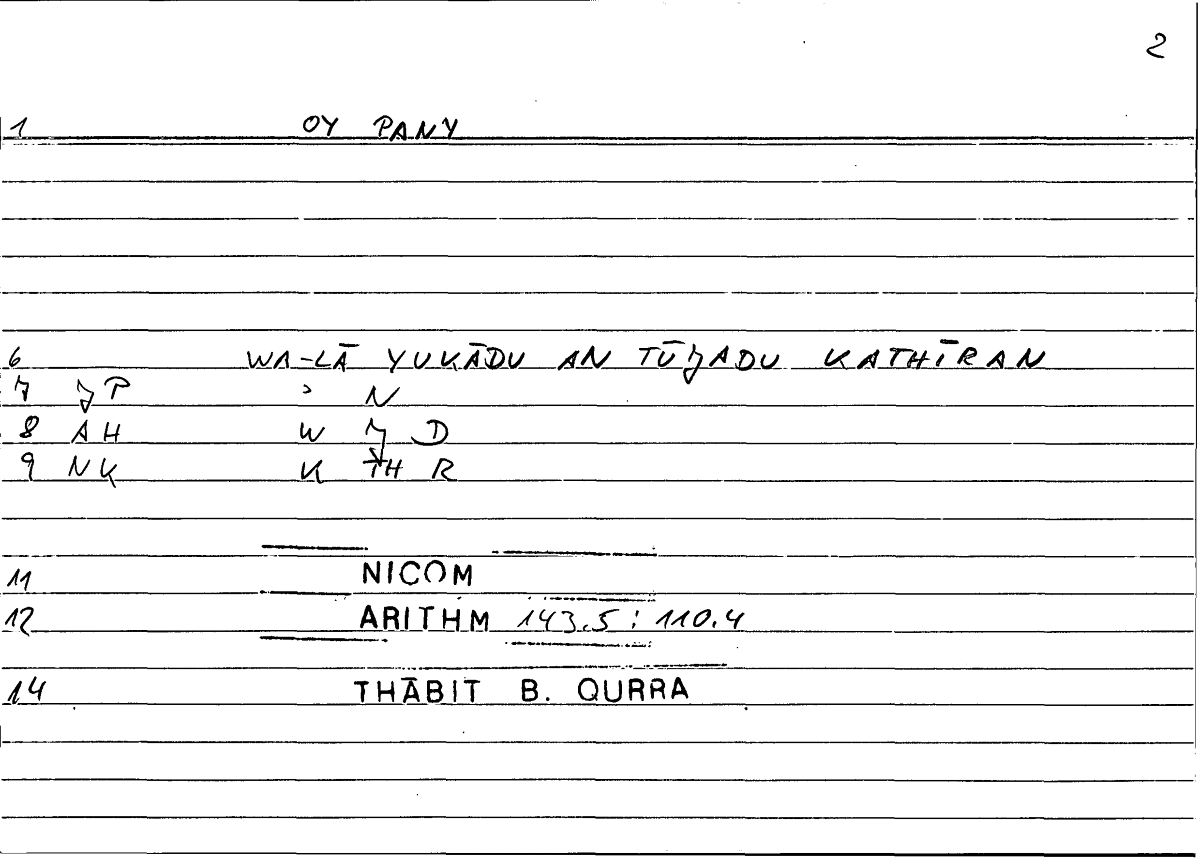 2
1 OY PANY
6 WA-LĀ YUKĀDU AN TŪJADU KATHĪRAN
7 JP ʾ N
8 AH W J D
9 NK K TH R
11 NICOM
12 ARITHM 143.5 : 110.4
14 THĀBIT B. QURRA